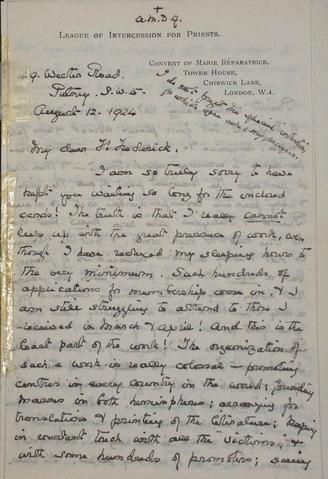 A.M.D.G.
LEAGUE OF INTERCESSION FOR PRIESTS.
CONVENT OF MARIE RÉPARATRICE,
TOWER HOUSE,
CHISWICK LANE,
LONDON, W.4.
9. Road.
Putney. S.W.15.
August 12. 1924
I do not forget the special intention
for which you asked my prayers.
My dear Fr Frederick,
I am so truly sorry to have
kept you waiting so long for the enclosed
cards! The truth is that I really cannot
keep up with the great pressure of work, even
though I have reduced my sleeping hours to
the very minimum. Such hundreds of
applications for membership come in, & I
am still struggling to attend to those I
received in March & April! And this is the
least part of the work! The organization of
such a work is really colossal – promoting
centres in every country in the world; founding
masses in both hemispheres; arranging for
translations & printing of the literature; keeping
in constant touch with all the "victims", &
with some hundreds of promoters; seeing